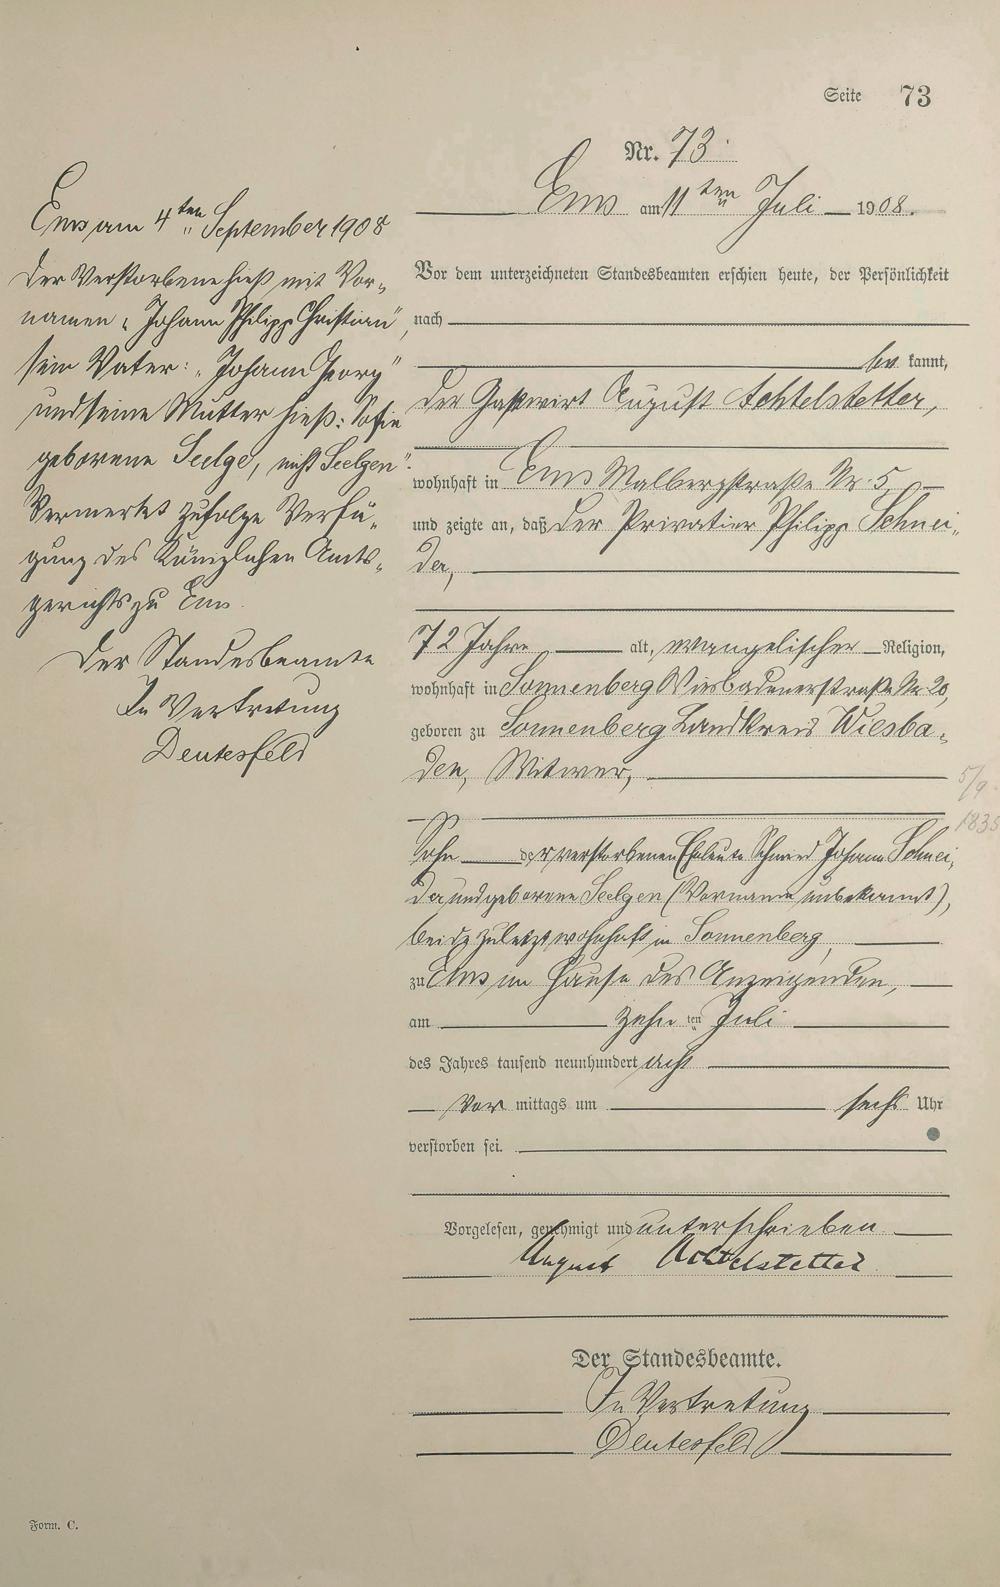 Seite 73
Nr. 73.
Ems am 11ten Juli 1908.
Vor dem unterzeichneten Standesbeamten erschien heute, der Persönlichkeit
nach
be kannt,
der Gastwirt August Achtelstetter,
wohnhaft in Ems Malbergstraße Nr. 5,
und zeigte an, daß der Privatier Philipp Schnei-
der,
72 Jahre alt, evangelischer Religion,
wohnhaft in Sonnenberg Wiesbadenerstraße Nr. 20,
geboren zu Sonnenberg Landkreis Wiesba-
den, Witwer,
Sohn der verstorbenen Eheleute Schmied Johann Schnei-
der und geborene Seelgen (Vorname unbekannt),
beide zuletzt wohnhaft in Sonnenberg,
zu Ems im Hause des Anzeigenden,
am zehn ten Juli
des Jahres tausend neunhundert acht
Vor mittags um sechs Uhr
verstorben sei.
Vorgelesen, genehmigt und unterschrieben
August Achtelstetter
Der Standesbeamte.
In Vertretung
Deutesfeld
Ems am 4ten September 1908
Der Verstorbene hieß mit Vor-
namen „Johann Philipp Christian",
sein Vater: „Johann Georg"
und seine Mutter hieß: Sofie
geborene Seelge, nicht Seelgen".
Vermerkt zufolge Verfü-
gung des Königlichen Amts-
gerichts zu Ems.
Der Standesbeamte
In Vertretung
Deutesfeld
5/9.
1835
Form. C.